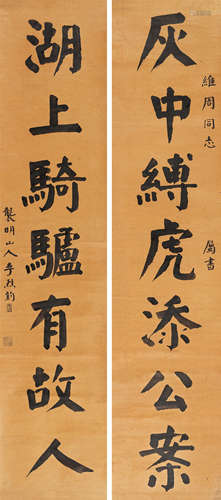 灰中縛虎添公案
維周同志
屬書
湖上騎驢有故人
龔明山人李烈鈞